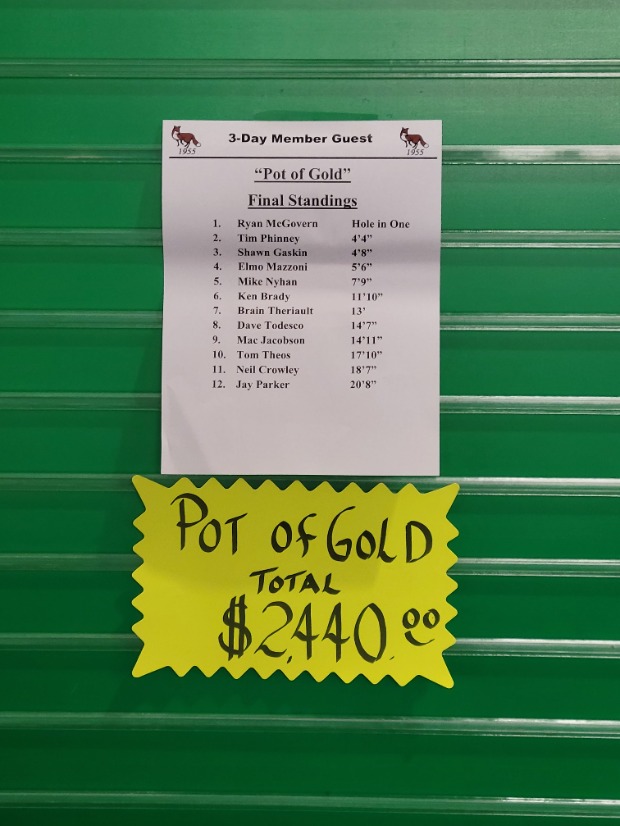 3-Day Member Guest
1955 1955
“Pot of Gold”
Final Standings
1. Ryan McGovern Hole in One
2. Tim Phinney 4’4”
3. Shawn Gaskin 4’8”
4. Elmo Mazzoni 5’6”
5. Mike Nyhan 7’9”
6. Ken Brady 11’10”
7. Brain Theriault 13’
8. Dave Todesco 14’7”
9. Mac Jacobson 14’11”
10. Tom Theos 17’10”
11. Neil Crowley 18’7”
12. Jay Parker 20’8”
POT OF GOLD
TOTAL
$2,440.00